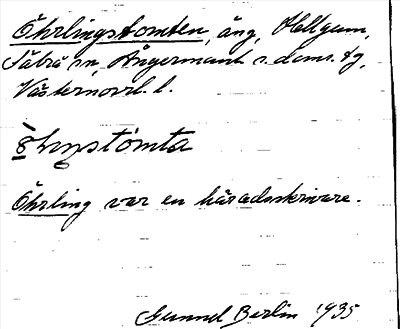 Öhrlingstomten, äng, Hellgum,
Täbrå sn, Ångermanl. s. doms. tg,
Västernorrl. l.
Öhrling var en häradsskrivare.
Gunnel Berlin 1935